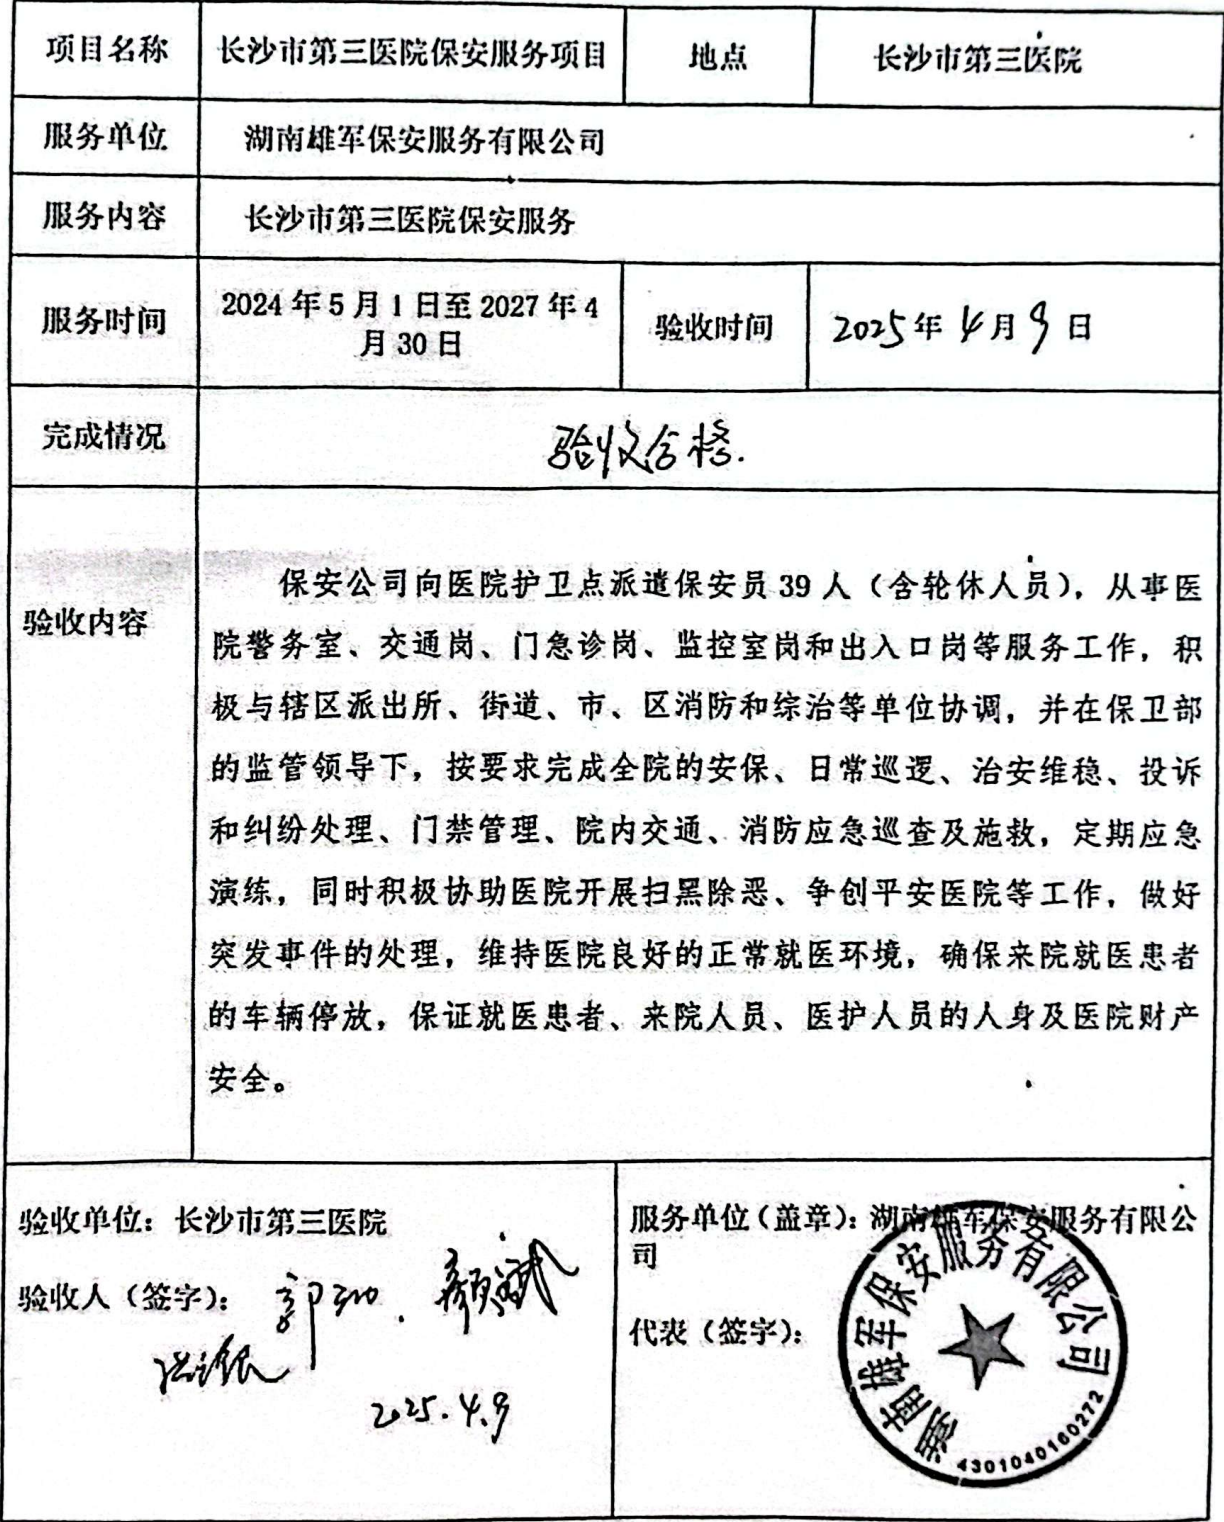 项目名称 长沙市第三医院保安服务项目 地点 长沙市第三医院
服务单位 湖南雄军保安服务有限公司
服务内容 长沙市第三医院保安服务
服务时间 2024年5月1日至2027年4
月30日
验收时间 2025年4月9日
完成情况 验收合格.
验收内容
保安公司向医院护卫点派遣保安员39人（含轮休人员），从事医
院警务室、交通岗、门急诊岗、监控室岗和出入口岗等服务工作，积
极与辖区派出所、街道、市、区消防和综治等单位协调，并在保卫部
的监管领导下，按要求完成全院的安保、日常巡逻、治安维稳、投诉
和纠纷处理、门禁管理、院内交通、消防应急巡查及施救，定期应急
演练，同时积极协助医院开展扫黑除恶、争创平安医院等工作，做好
突发事件的处理，维持医院良好的正常就医环境，确保来院就医患者
的车辆停放，保证就医患者、来院人员、医护人员的人身及医院财产
安全。
验收单位：长沙市第三医院
验收人（签字）：
2025.4.9
服务单位（盖章）：湖南雄军保安服务有限公
司
代表（签字）：
湖南雄军保安服务有限公司
4301040160272